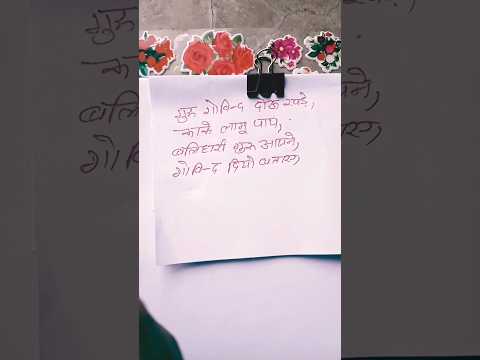 गुरु गोविन्द दोऊ खड़े,
काके लागू पाय,
बलिहारी गुरु आपने,
गोविन्द दियो बताय,